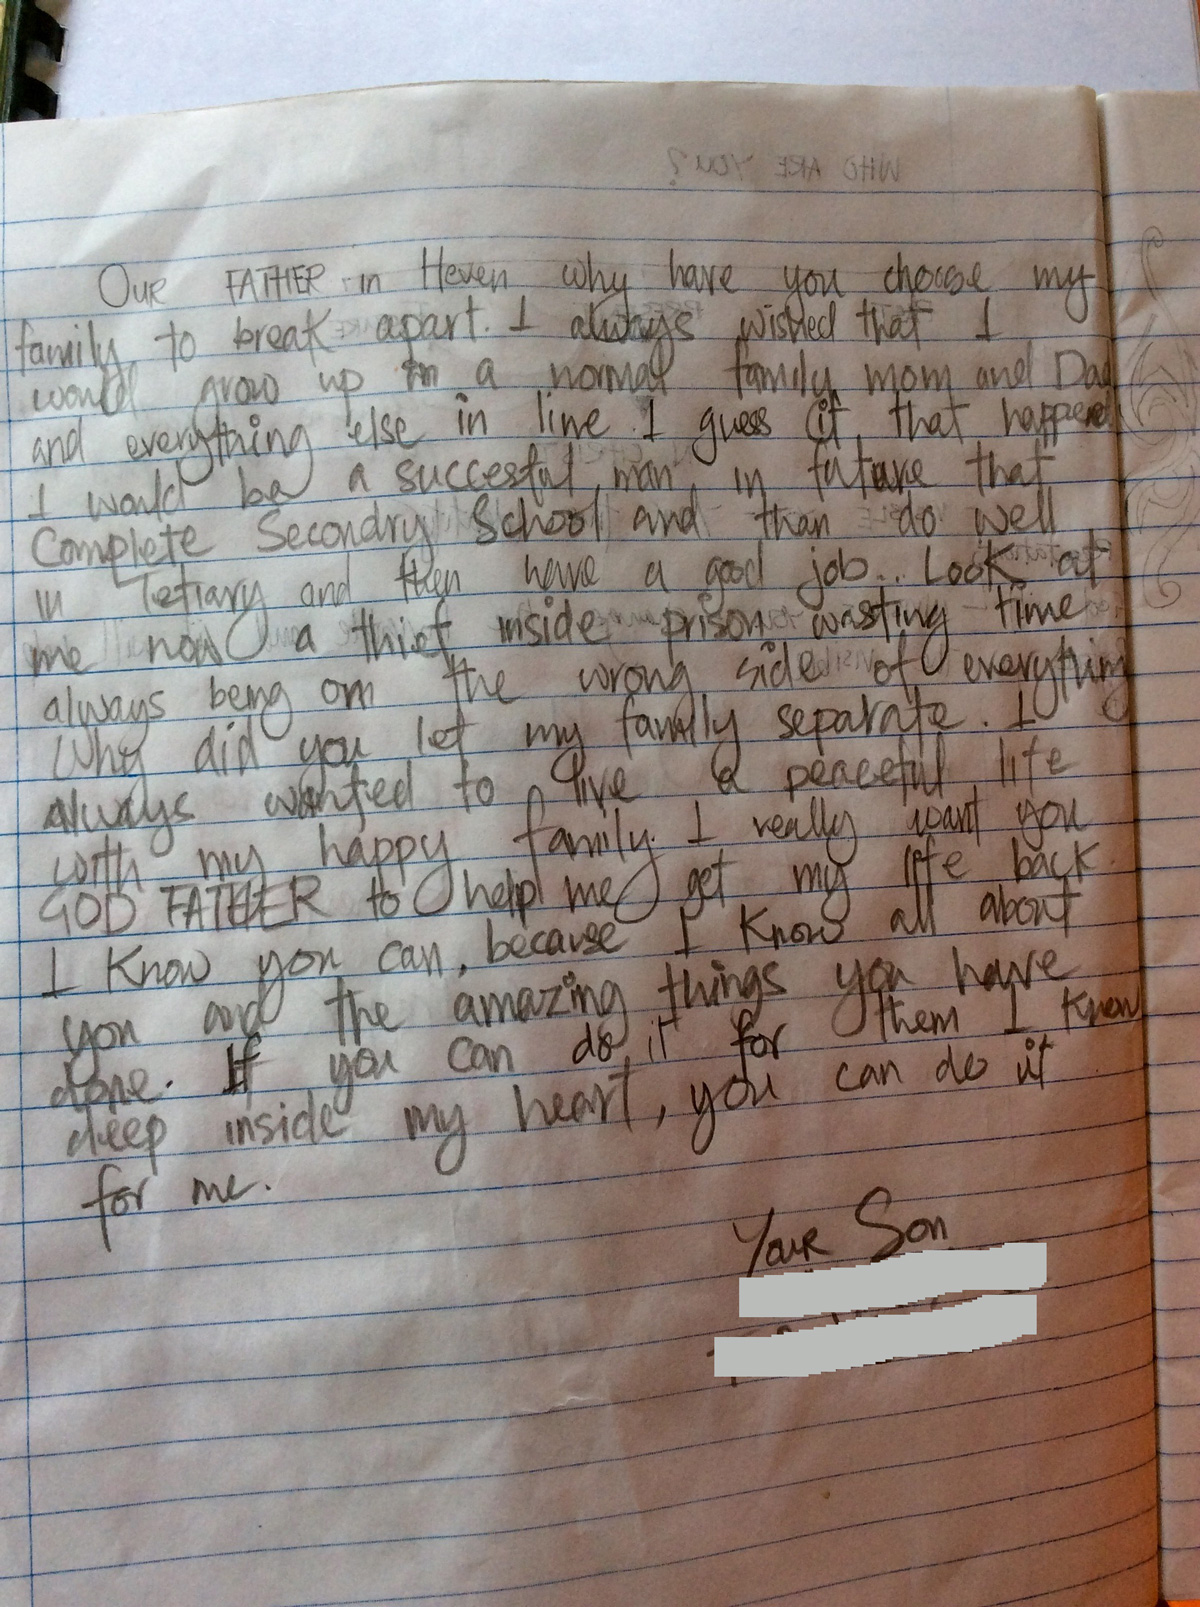 WHO ARE YOU?
OUR FATHER in Heven why have you choose my
family to break apart. I always wished that I
would grow up in a normal family mom and Dad
and everything else in line. I guess if that happened
I would be a succesful man in future that
Complete Secondry School and than do well
in Tetiary and then have a good job... Look at
me now a thief inside prison wasting time
always being on the wrong side of everything
Why did you let my family separate. I
always wanted to live a peaceful life
with my happy family. I really want you
GOD FATHER to help me get my life back.
I Know you can, because I Know all about
you and the amazing things you have
done. If you can do it for them I Know
deep inside my heart, you can do it
for me.
Your Son